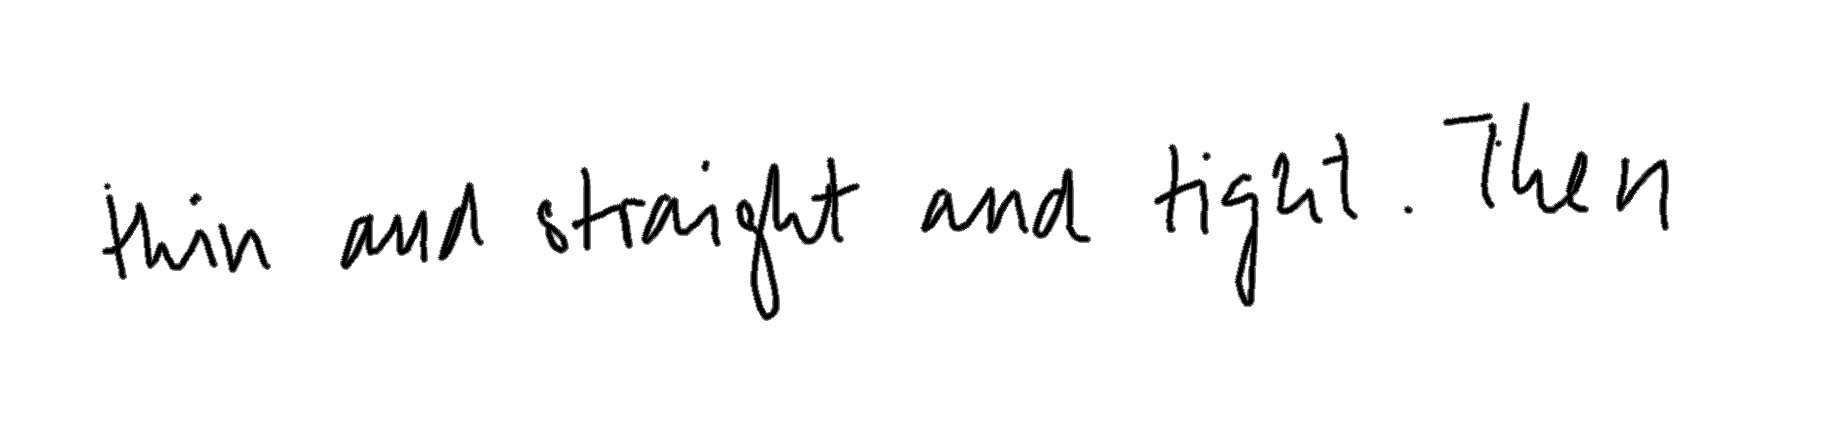 thin and straight and tight. Then